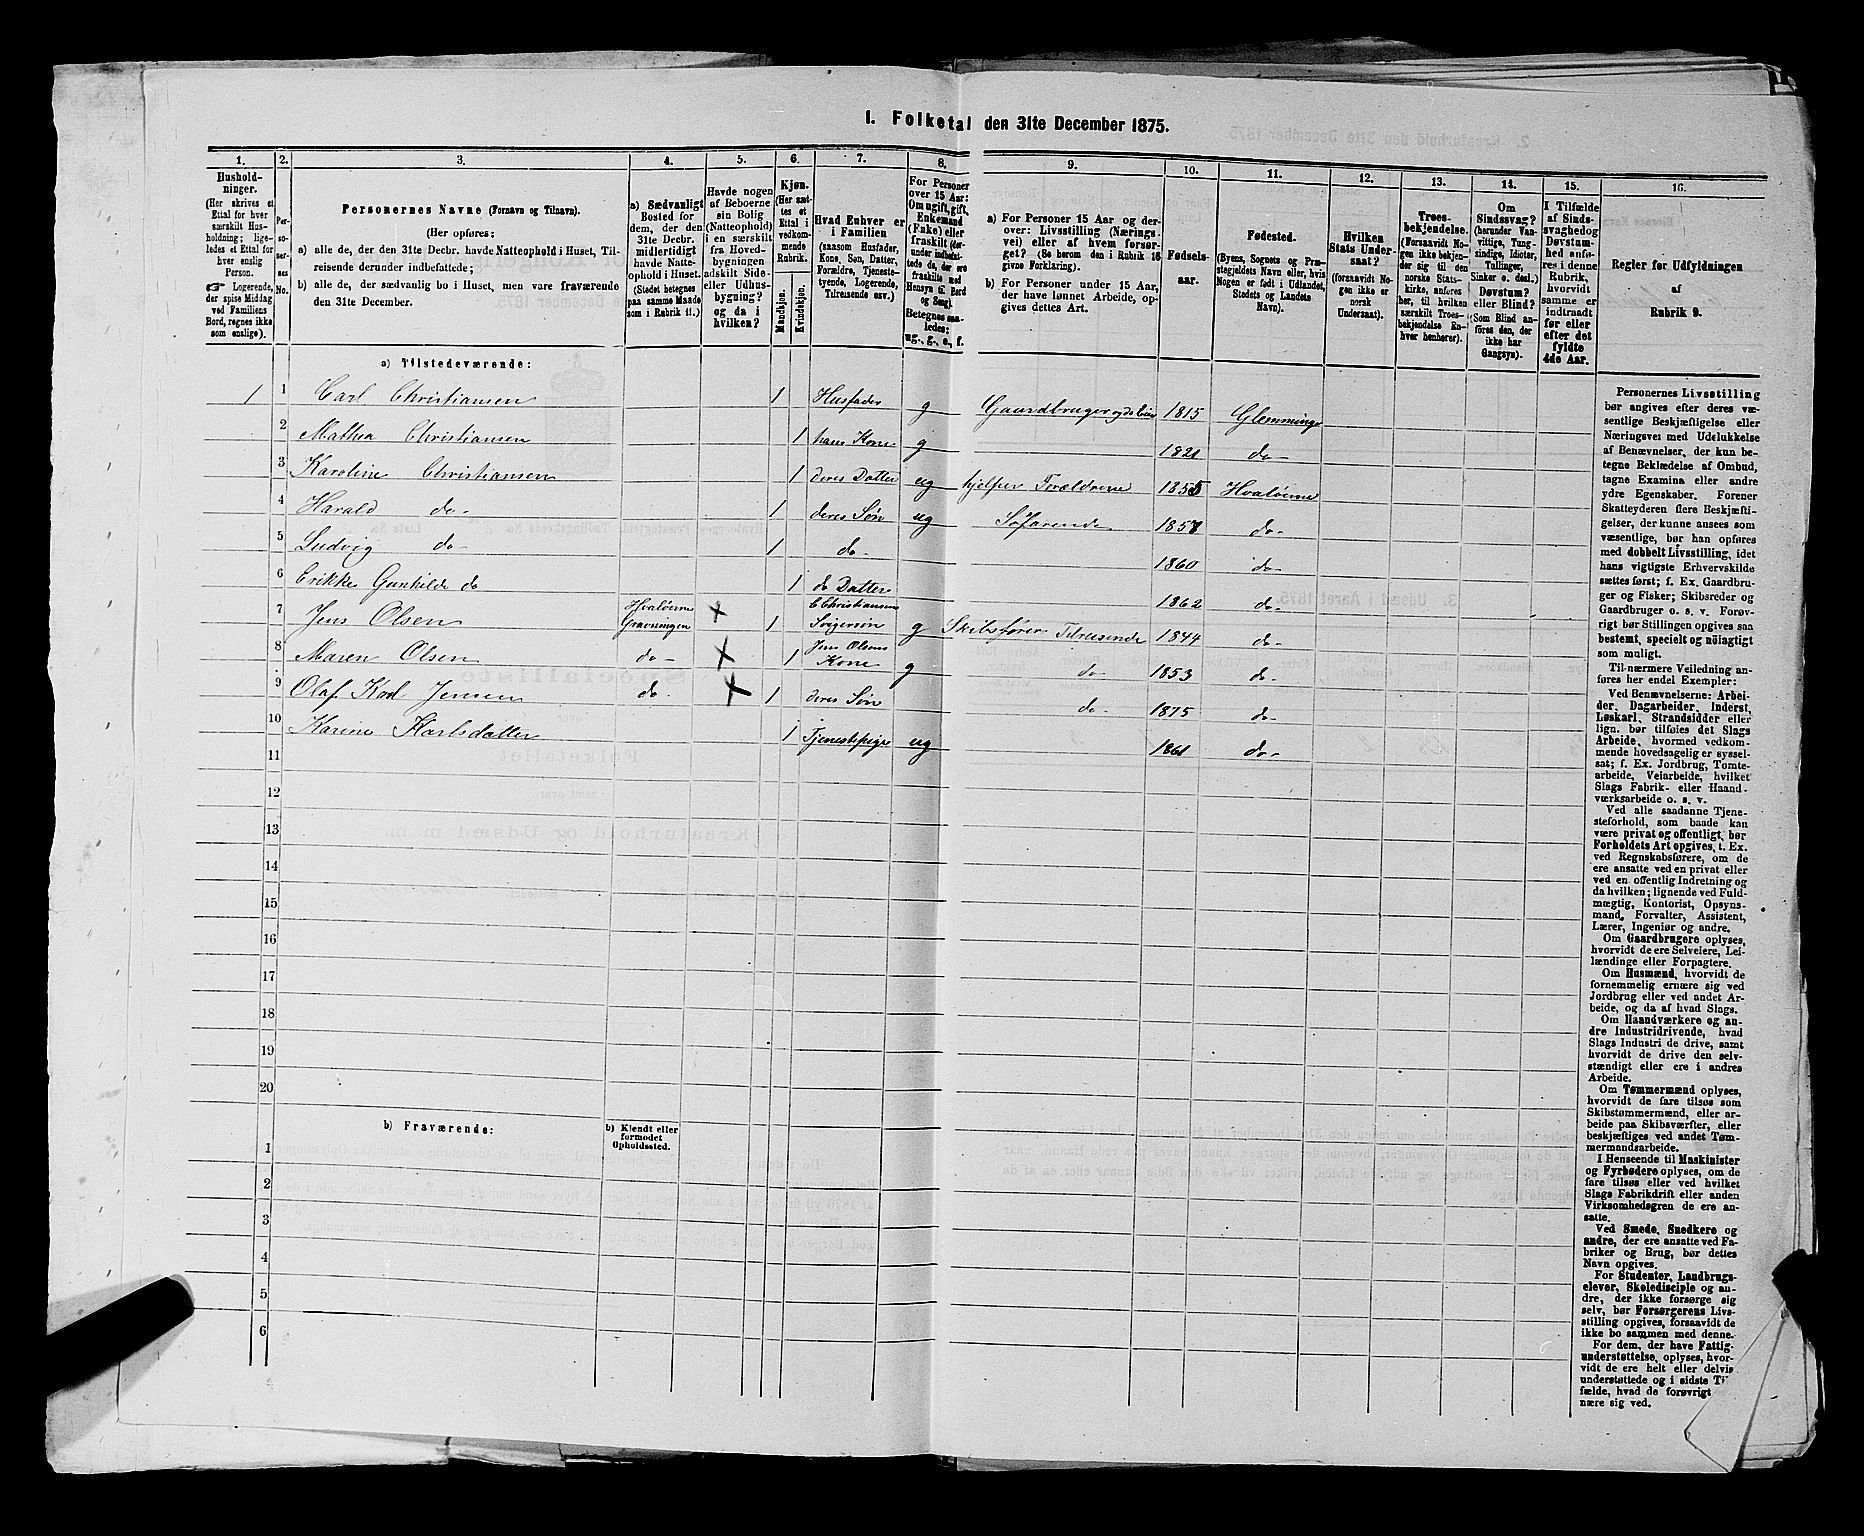 1. Folketal den 31te December 1875.
1. 2. 3. 4. 5. 6. 7. 8. 9. 10. 11. 12. 13. 14. 15. 16.
Hushold-
ninger.
(Her skrives et
Ettal for hver
særskilt Hus-
holdning; lige-
ledes et Ettal for
hver enslig
Person.
☛ Logerende,
der spise Middag
ved Familiens
Bord, regnes ikke
som enslige).
Per-
so-
ner-
nes
No.
Personernes Navne (Fornavn og Tilnavn).
(Her opføres:
a) alle de, der den 31te Decbr. havde Natteophold i Huset, Til-
reisende derunder indbefattede;
b) alle de, der sædvanlig bo i Huset, men vare fraværende
den 31te December.
a) Sædvanligt
Bosted for
dem, der den
31te Decbr.
midlertidigt
havde Natte-
ophold i Huset.
(Stedet betegnes
paa samme Maade
som i Rubrik 11.)
Havde nogen
af Beboerne
sin Bolig
(Natteophold)
i en særskilt
fra Hoved-
bygningen
adskilt Side-
eller Udhus-
bygning?
og da i
hvilken?
Kjøn.
(Her sæt-
tes et
Ettal i
vedkom-
mende
Rubrik.
Mandkjøn.
Kvindekjøn.
Hvad Enhver er
i Familien
(saasom Husfader,
Kone, Søn, Datter,
Forældre, Tjeneste-
tyende, Logerende,
Tilreisende osv.)
For Personer
over 15 Aar:
Om ugift, gift,
Enkemand
(Enke) eller
fraskilt
Betegnes saa-
ledes:
ug., g., e., f.
a) For Personer 15 Aar og der-
over: Livsstilling (Nærings-
vei) eller af hvem forsør-
get? (Se herom den i Rubrik 16
givne Forklaring).
b) For Personer under 15 Aar,
der have lønnet Arbeide, op-
gives dettes Art.
Fødsels-
aar.
Fødested.
(Byens, Sognets og Præ-
stegjeldets Navn eller, hvis
Nogen er født i Udlandet,
Stedets og Landets
Navn).
Hvilken
Stats Under-
saat?
(forsaavidt No-
gen ikke er
norsk
Undersaat).
Troes-
bekjendelse.
(Forsaavidt No-
gen ikke bekjen-
der sig til den
norske Stats-
kirke, anføres
her, til hvilken
særskilt Troes-
bekjendelse En-
hver henhører).
Om
Sindssvag?
(herunder Van-
vittige, Tung-
sindige, Idioter,
Tullinger,
Sinker o. desl.)
Døvstum?
eller Blind?
(Som Blind an-
føres den, der
ikke har
Gangsyn).
I Tilfælde
af Sinds-
svaghed og
Døvstum-
hed anfø-
res i denne
Rubrik,
hvorvidt
samme er
indtraadt
før eller
efter det
fyldte
4de Aar.
Regler før Udfyldningen
af
Rubrik 9.
a) Tilstedeværende:
1 1 Carl Christiansen 1 Husfader g Gaardbruger og 1815 Glemminge
2 Mathea Christiansen 1 hans Kone g 1821 do-
3 Karoline Christiansen 1 deres Datter ug hjelper Forældrene 1855 Hvaløerne
4 Harald do- 1 deres Søn ug Søfarende 1857 do-
5 Ludvig do 1 do- 1860 do-
6 Erikke Gunhilde do 1 do Datter 1862 do-
7 Jens Olsen Hvaløerne Gravningen × 1 C Christiansens Svigersøn g Skibsfører Tilreisende 1844 do-
8 Maren Olsen do- × 1 Jens Olsens Kone g do- 1853 do-
9 Olaf Karl Jensen do- × 1 deres Søn do- 1875 do-
10 Karine Karlsdatter 1 Tjenestepige ug 1861 do-
11
12
13
14
15
16
17
18
19
20
b) Fraværende: b) Kjendt eller
formodet
Opholdssted.
1
2
3
4
5
6
Personernes Livsstilling
bør angives efter deres væ-
sentlige Beskjæftigelse eller
Næringsvei med Udelukkelse
af Benævnelser, der kun be-
tegne Beklædelse af Ombud,
tagne Examina eller andre
ydre Egenskaber. Forener
Skatteyderen flere Beskjæfti-
gelser, der kunne ansees som
væsentlige, bør han opføres
med dobbelt Livsstilling, idet
hans vigtigste Erhvervskilde
sættes først; f. Ex. Gaardbru-
ger og Fisker; Skibsreder og
Gaardbruger o. s. v. Forøv-
rigt bør Stillingen opgives saa
bestemt, specielt og nöiagtigt
som muligt.
Til nærmere Veiledning an-
føres her endel Exempler:
Ved Benævnelserne: Arbei-
der, Dagarbeider, Inderst,
Løskarl, Strandsidder eller
lign. bør tilføies det Slags
Arbeide, hvormed vedkom-
mende hovedsagelig er syssel-
sat; f. Ex. Jordbrug, Tomte-
arbeide, Veiarbeide, hvilket
Slags Fabrik- eller Haand-
værksarbeide o. s. v.
Ved alle saadanne Tjene-
steforhold, som baade kan
være privat og offentligt, bør
Forholdets Art opgives, t. Ex.
ved Regnskabsførere, om de
ere ansatte ved en privat eller
ved en offentlig Indretning og
da hvilken; lignende ved Fuld-
mægtig, Kontorist, Opsyns-
mand, Forvalter, Assistent,
Lærer, Ingeniør og andre.
Om Gaardbrugere oplyses,
hvorvidt de ere Selveiere, Lei-
lændinge eller Forpagtere.
Om Husmænd, hvorvidt de
fornemmelig ernære sig ved
Jordbrug eller ved andet Ar-
beide, og da af hvad Slags.
Om Haandværkere og an-
dre Industridrivende, hvad
Slags Industri de drive, samt
hvorvidt de drive den selv-
stændigt eller ere i andres
Arbeide.
Om Tømmermænd oplyses,
hvorvidt de fare tilsøs som
Skibstømmermænd, eller ar-
beide paa Skibsværfter, eller
beskjæftiges ved andet Tøm-
mermandsarbeide.
I Henseende til Maskinister
og Fyrbødere oplyses, om de
fare tilsøs eller ved hvilket
Slags Fabrikdrift eller anden
Virksomhedsgren de ere an-
satte.
Ved Smede, Snedkere og
andre, der ere ansatte ved Fa-
briker og Brug, bør dettes
Navn opgives.
For Studenter, Landbrugs-
elever, Skoledisciple og an-
dre, der ikke forsørge sig
selv, bør Forsørgerens Livs-
stilling opgives, forsaavidt de
ikke bo sammen med denne.
For dem, der have Fattig-
understøttelse, oplyses, hvor-
vidt de ere helt eller delvis
understøttede og i sidste Til
fælde, hvad de forøvrigt
nære sig ved.